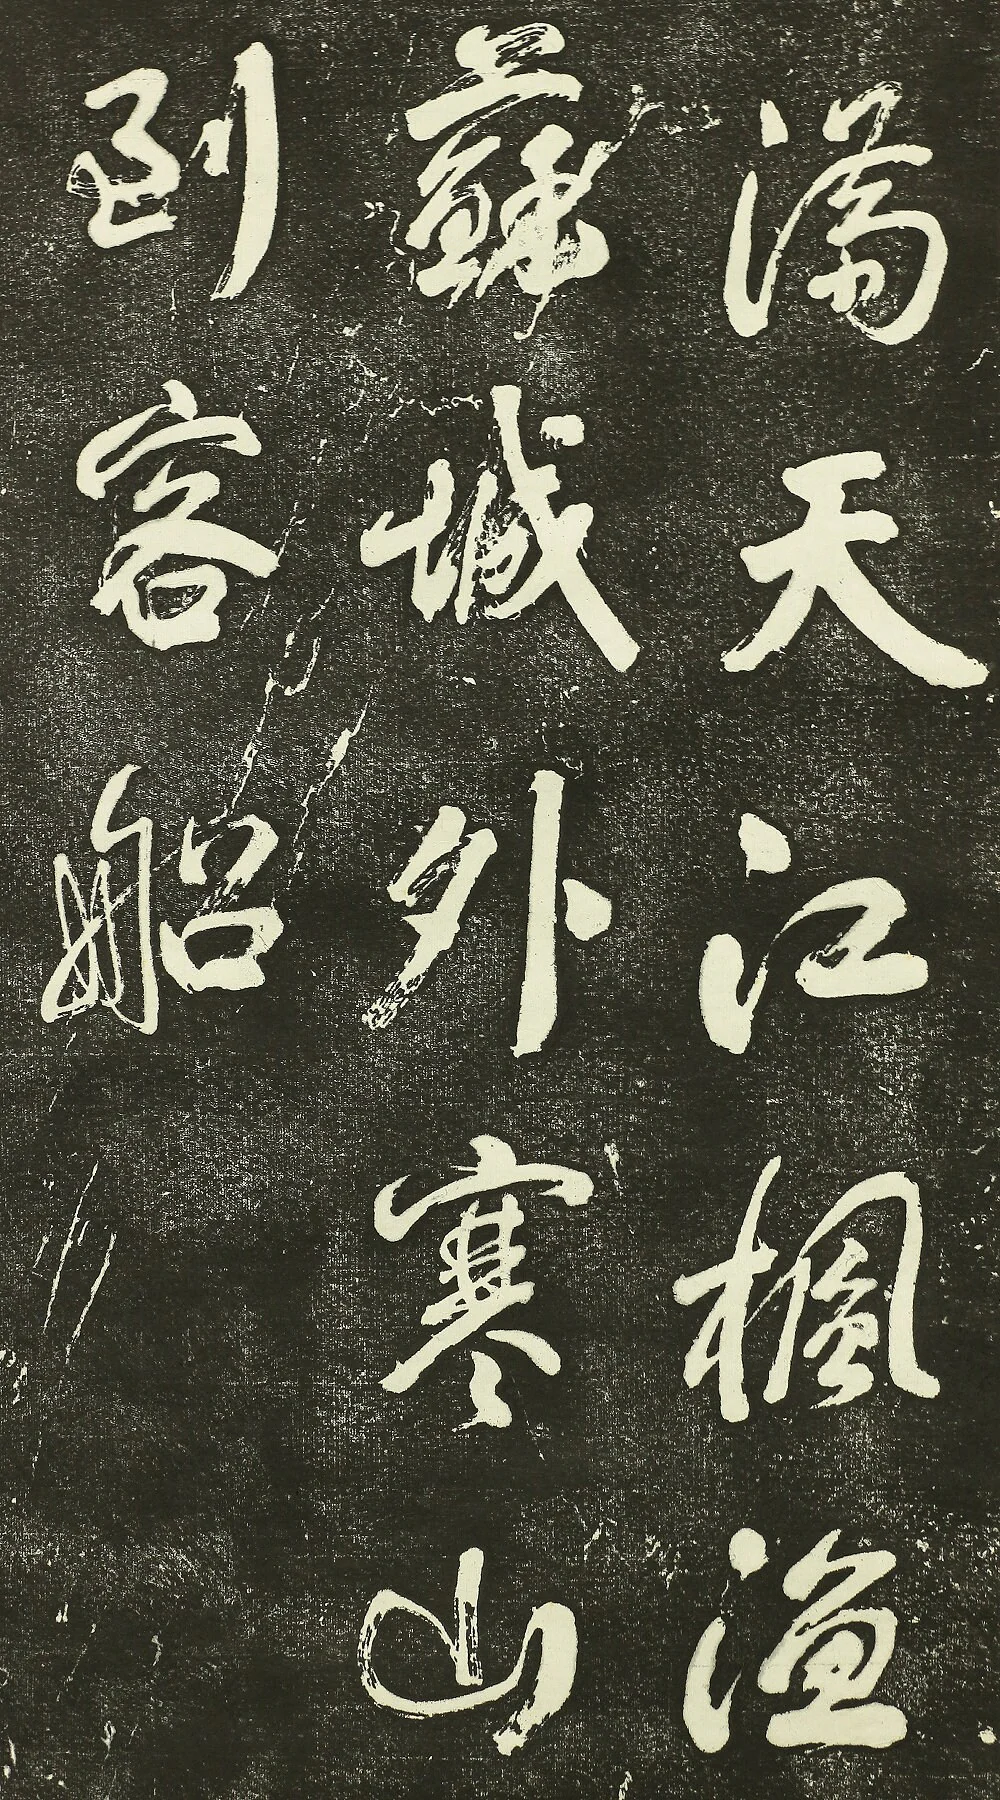 滿天江楓漁
蘇城外寒山
到客船